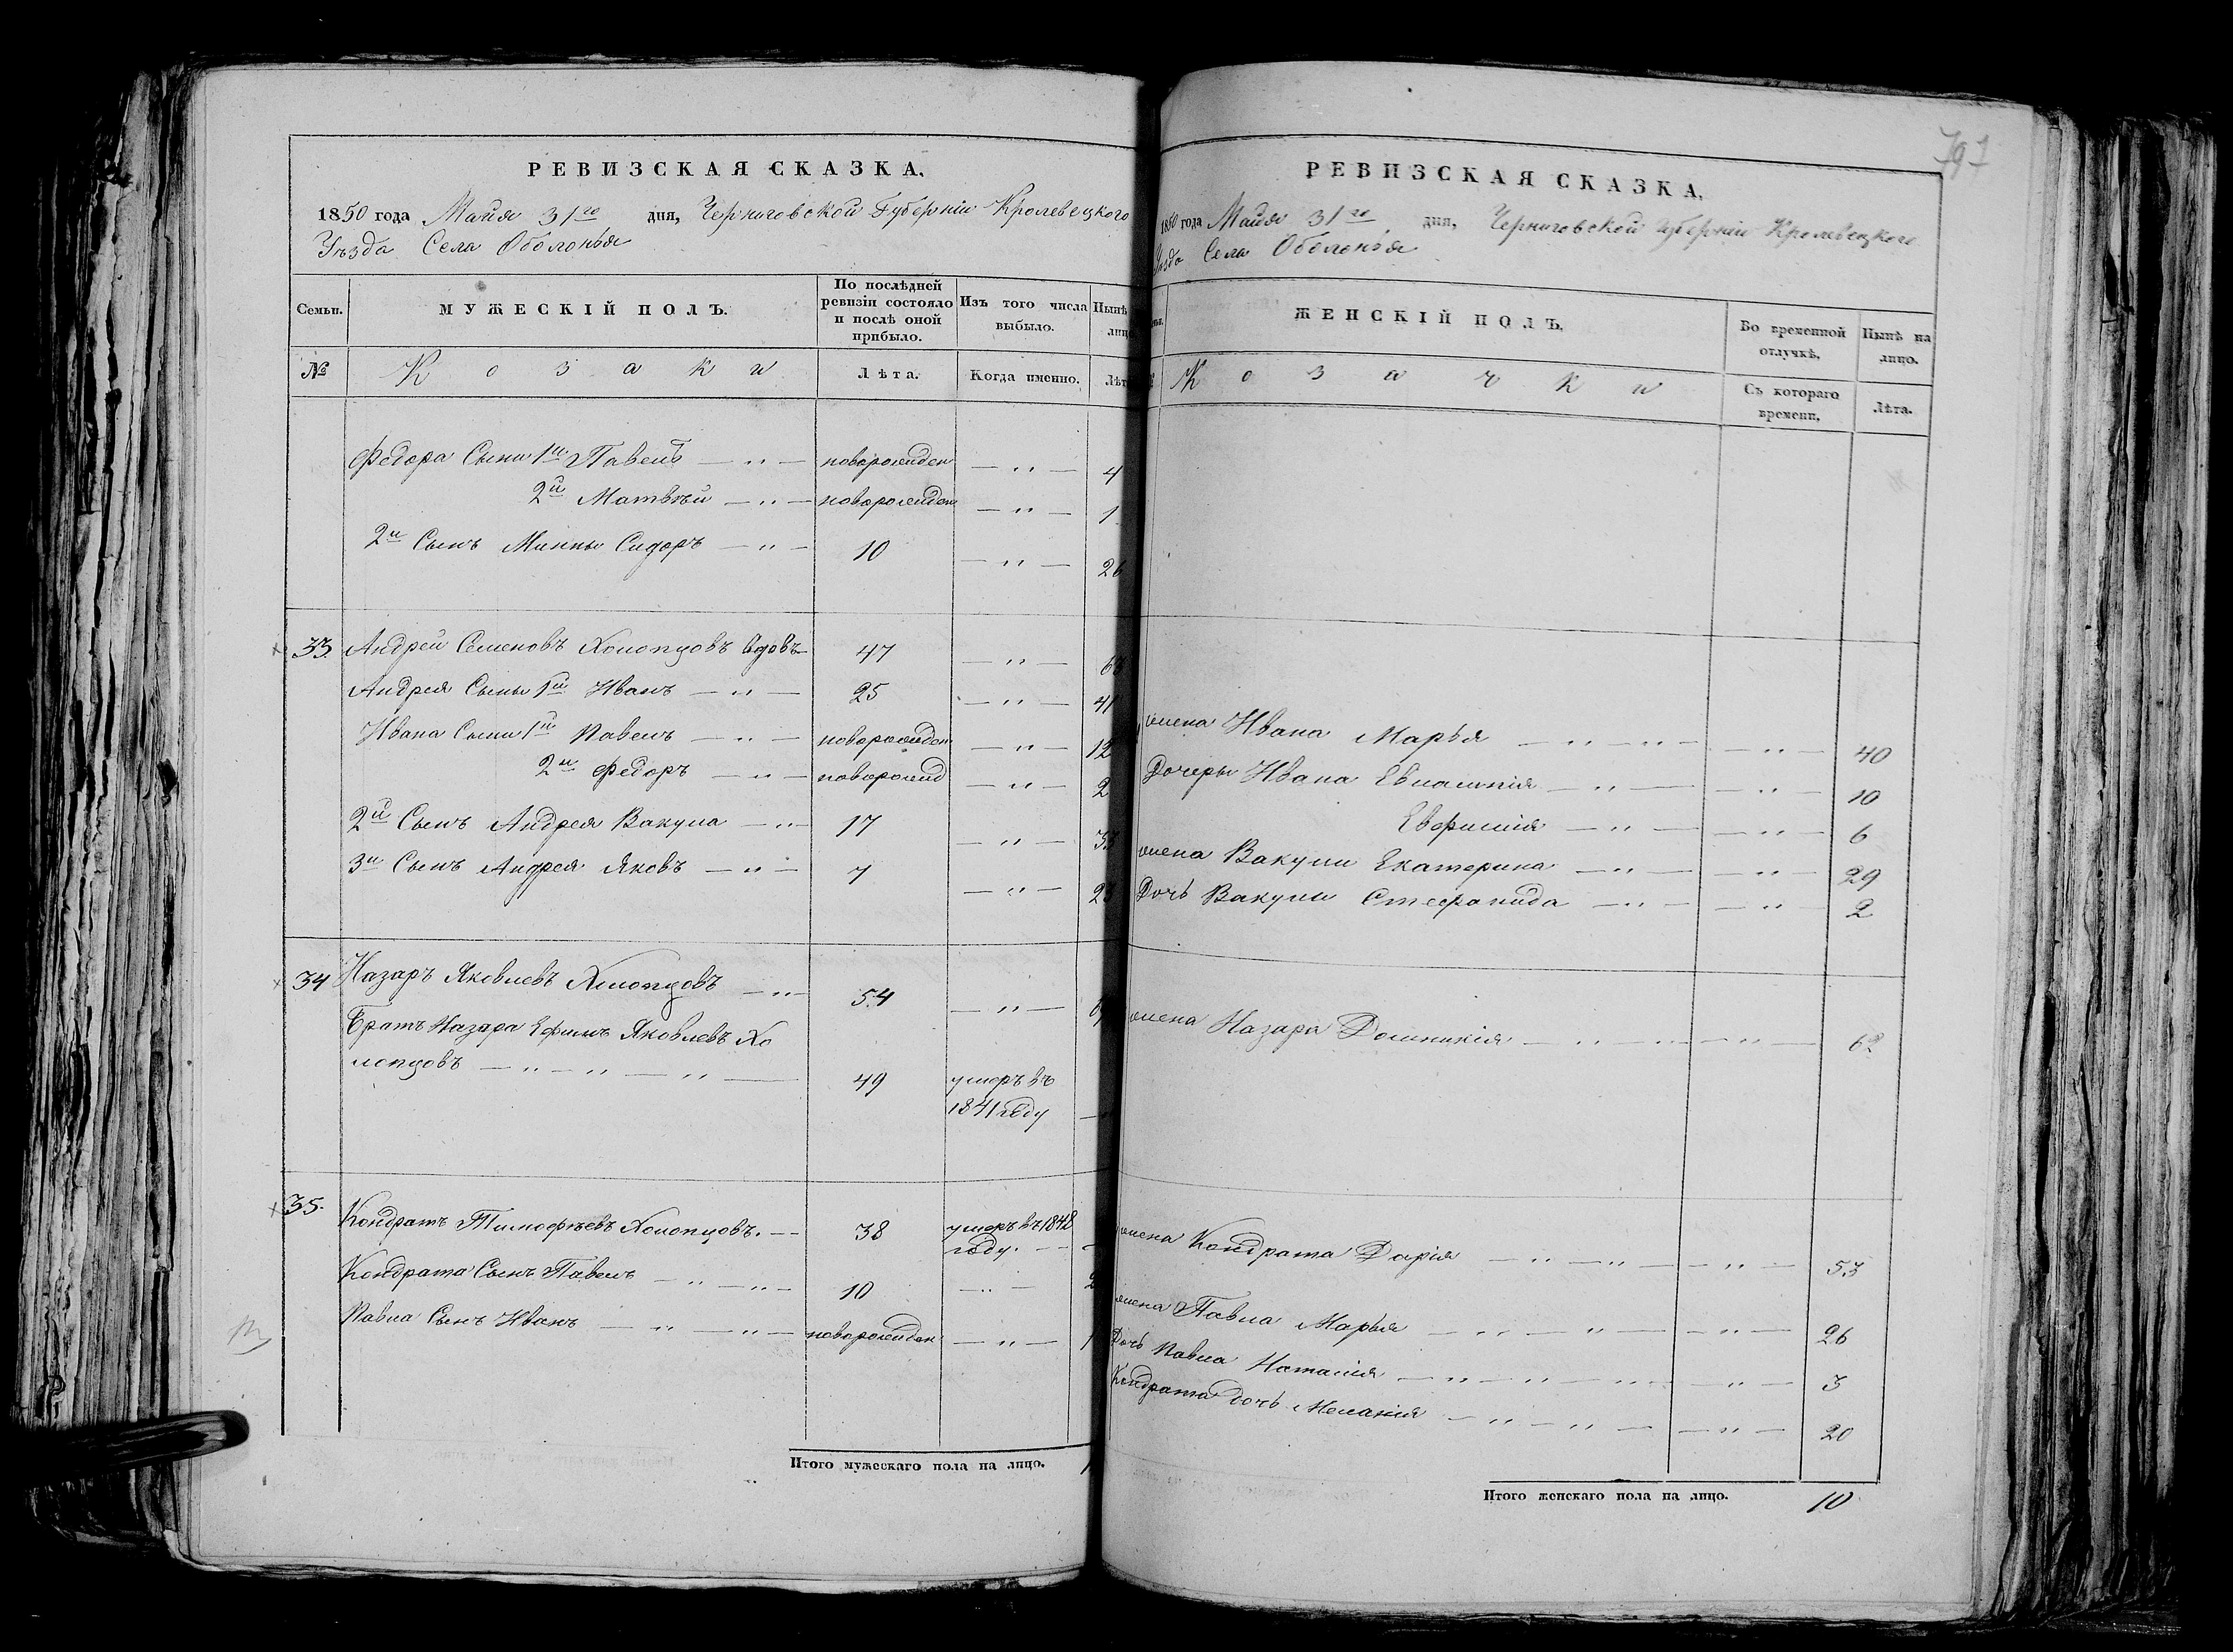 РЕВИЗСКАЯ СКАЗКА.
1850 года Майя 31го дня, Черниговской Губерніи Кролевецкого
Уѣзда Села Оболонья
Семьи.
МУЖЕСКІЙ ПОЛЪ.
По послѣдней ревизіи состояло и послѣ оной прибыло.
Изъ того числа выбыло.
Нынѣ
лице
№
Козаки
Лѣта.
Когда именно.
Лѣт
Федора Сыны 1й Павелъ — " — новорожден — " — 4
2й Матвѣй — " — новорожден — " — 1
2й Сынъ Минны Сидоръ — " — 10 — " — 26
33. Андрей Семеновъ Холопцовъ вдовъ 47 — " —
Андрея Сыны 1й Иванъ — " — 25 — " — 41
Ивана Сыны 1й Павелъ — " — новорожден — " — 12
2й Федоръ — " — новорожд — " — 2
2й Сынъ Андрея Вакула — " — 17 — " — 33
3й Сынъ Андрея Яковъ — " — 7 — " — 23
34 Назаръ Яковлевъ Холопцовъ — " — 54 — " —
Братъ Назара Ефимъ Яковлевъ Хо
лопцовъ — " — " — " — 49 умеръ въ
1841 году —
35. Кондратъ Тимофѣевъ Холопцовъ. — 38 умеръ въ 1848
году. — —
Кондрата Сынъ Павелъ — " — " — 10 — " — 2
Павла Сынъ Иванъ — " — " — новорожден — " — 1
Итого мужескаго пола на лицо. 1
797
РЕВИЗСКАЯ СКАЗКА.
1850 года Майя 31го дня, Черниговской Губерніи Кролевецкого
Уѣзда Села Оболонья
ЖЕНСКІЙ ПОЛЪ.
Во временной отлучкѣ.
Нынѣ на лицо.
Козачки
Съ котораго времени.
Лѣта.
жена Ивана Марья — " — " — — " — 40
Дочери Ивана Евлампія — " — — " — 10
Евфимія — " — — " — 6
жена Вакулы Екатерина — " — — " — 29
Дочь Вакулы Стефанида — " — — " — 2
жена Назара Домникія — " — " — — " — 62
жена Кондрата Дарія — " — " — — " — 53
жена Павла Марья — " — " — — " — 26
Дочь Павла Наталія — " — " — " — — " — 3
Кондрата дочь Меланія — " — " — — " — 20
Итого женскаго пола на лицо. 10